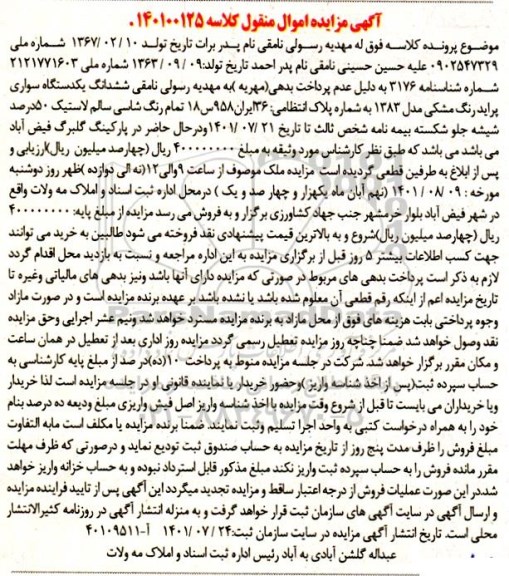 آگهی مزایده اموال منقول کلاسه ۱۴۰۱۰۰۱۲۵ .
موضوع پرونده کلاسه فوق له مهدیه رسولی نامقی نام پدر برات تاریخ تولد ۱۰ / ۰۲ /۱۳۶۷ شماره ملی
۰۹۰۲۵۴۷۳۲۹ علیه حسین حسینی نامقی نام پدر احمد تاریخ تولد:۰۹ / ۰۹ / ۱۳۶۳ شماره ملی ۲۱۲۱۷۷۱۶۰۳
شماره شناسنامه ۳۱۷۶ به دلیل عدم پرداخت بدهی(مهریه )به مهدیه رسولی نامقی ششدانگ یکدستگاه سواری
پراید رنگ مشکی مدل ۱۳۸۳ به شماره پلاک انتظامی: ۳۶ایران۹۵۸س۱۸ تمام رنگ شاسی سالم لاستیک ۵۰درصد
شیشه جلو شکسته بیمه نامه شخص ثالث تا تاریخ ۲۱ /۱۴۰۱/۰۷ودرحال حاضر در پارکینگ گلبرگ فیض آباد
می باشد می باشد که طبق نظر کارشناس مورد وثیقه به مبلغ ۴۰۰۰۰۰۰۰۰ ریال (چهارصد میلیون ریال)ارزیابی و
پس از ابلاغ به طرفین قطعی گردیده است مزایده ملک موصوف از ساعت ۹والی۱۲(نه الی دوازده )ظهر روز دوشنبه
مورخه : ۰۹ /۰۸ / ۱۴۰۱ (نهم آبان ماه یکهزار و چهار صد و یک ) درمحل اداره ثبت اسناد و املاک مه ولات واقع
در شهر فیض آباد بلوار خرمشهر جنب جهاد کشاورزی برگزار و به فروش می رسد مزایده از مبلغ پایه: ۴۰۰۰۰۰۰۰۰
ریال (چهارصد میلیون ریال)شروع و به بالاترین قیمت پیشنهادی نقد فروخته می شود طالبین به خرید می توانند
جهت کسب اطلاعات بیشتر ۵ روز قبل از برگزاری مزایده به این اداره مراجعه و نسبت به بازدید محل اقدام گردد
لازم به ذکر است پرداخت بدهی های مربوط در صورتی که مزایده دارای آنها باشد ونیز بدهی های مالیاتی وغیره تا
تاریخ مزایده اعم از اینکه رقم قطعی آن معلوم شده باشد یا نشده باشد بر عهده برنده مزایده است و در صورت مازاد
وجوه پرداختی بابت هزینه های فوق از محل مازاد به برنده مزایده مسترد خواهد شد ونیم عشر اجرایی وحق مزایده
نقد وصول خواهد شد ضمنا چناچه روز مزایده تعطیل رسمی گردد مزایده روز اداری بعد از تعطیل در همان ساعت
و مکان مقرر برگزار خواهد شد. شرکت در جلسه مزایده منوط به پرداخت ۱۰(ده)در صد از مبلغ پایه کارشناسی به
حساب سپرده ثبت(پس از اخذ شناسه واریز )وحضور خریدار یا نماینده قانونی او در جلسه مزایده است لذا خریدار
ویا خریداران می بایست تا قبل از شروع وقت مزایده با اخذ شناسه واریز اصل فیش واریزی مبلغ ودیعه ده درصد بنام
خود را به همراه درخواست کتبی به واحد اجرا تسلیم وثبت نمایند. ضمنا برنده مزایده یا مکلف است مابه التفاوت
مبلغ فروش را ظرف مدت پنج روز از تاریخ مزایده به حساب صندوق ثبت تودیع نماید و درصورتی که ظرف مهلت
مقرر مانده فروش را به حساب سپرده ثبت واریز نکند مبلغ مذکور قابل استرداد نبوده و به حساب خزانه واریز خواهد
شد.در این صورت عملیات فروش از درجه اعتبار ساقط و مزایده تجدید میگردد این آگهی پس از تایید فراینده مزایده
و ارسال آگهی در سایت آگهی های سازمان ثبت قرار خواهد گرفت و به منزله انتشار آگهی در روزنامه کثیرالانتشار
محلی است. تاریخ انتشار آگهی مزایده در سایت سازمان ثبت:۲۴ / ۰۷ /۱۴۰۱ آ-۴۰۱۰۹۵۱۱
عبداله گلشن آبادی به آباد رئیس اداره ثبت اسناد و املاک مه ولات